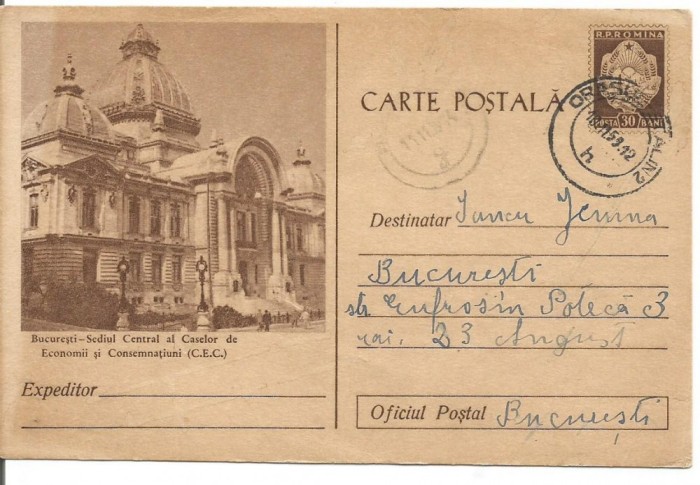 R.P.ROMINA
POSTA 30 BANI
CARTE POȘTALĂ
ORAȘUL STALIN 2
Destinatar Iancu Jenina
București
str. Eufrosin Potecă 3
rai. 23 August
București – Sediul Central al Caselor de
Economii și Consemnațiuni (C.E.C.)
Expeditor
Oficiul Poștal București